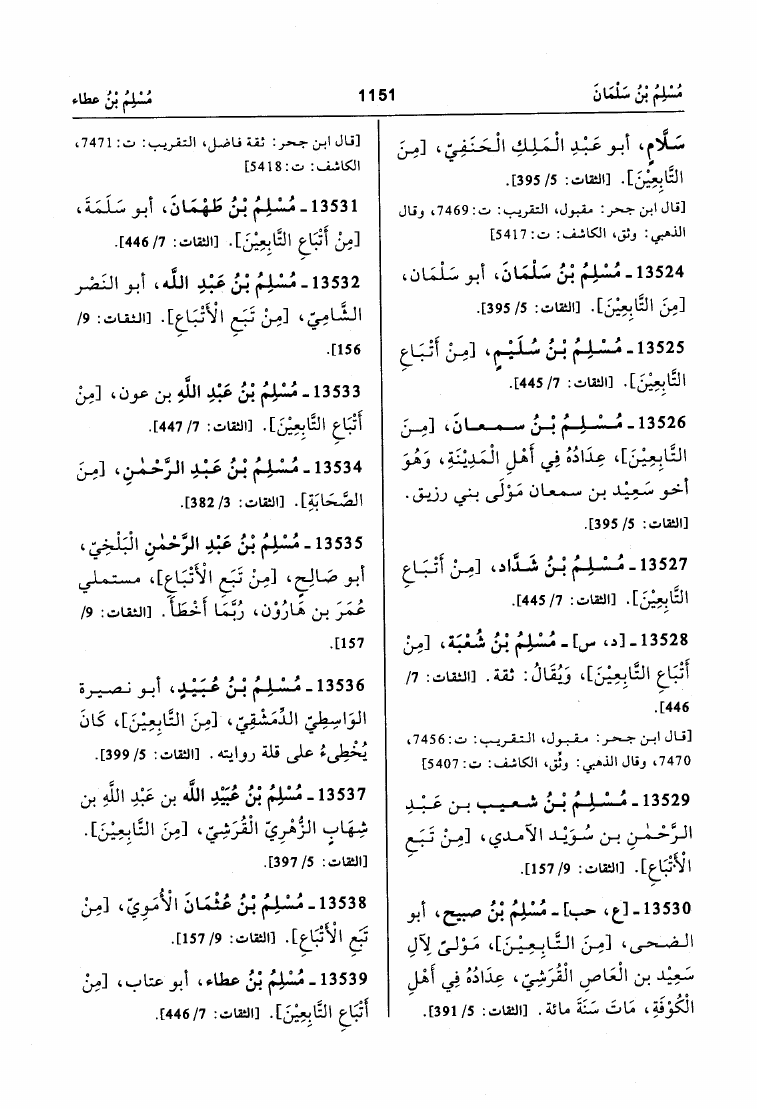 مُسْلِمُ بْنُ سَلْمَانَ
1151
مُسْلِمُ بْنُ عطاء
سَلَّامٍ، أبو عَبْدِ الْمَلِكِ الْحَنَفِيّ، [مِنَ
التَّابِعِيْنَ]. [الثقات: 5/ 395].
[قال ابن حجر: مقبول، التقريب: ت: 7469، وقال
الذهبي: وثق، الكاشف: ت: 5417]
13524 ـ مُسْلِمُ بْنُ سَلْمَانَ، أبو سَلْمَان،
[مِنَ التَّابِعِيْنَ]. [الثقات: 5/ 395].
13525 ـ مُسْلِمُ بْنُ سُلَيْمٍ، [مِنْ أَتْبَاعِ
التَّابِعِيْنَ]. [الثقات: 7/ 445].
13526 ـ مُسْلِمُ بْنُ سمعان، [مِنَ
التَّابِعِيْنَ]، عِدَادُهُ فِي أَهْلِ الْمَدِيْنَةِ، وَهُوَ
أخو سَعِيْد بن سمعان مَوْلَى بني رزيق.
[الثقات: 5/ 395].
13527 ـ مُسْلِمُ بْنُ شَدَّاد، [مِنْ أَتْبَاعِ
التَّابِعِيْنَ]. [الثقات: 7/ 445].
13528 ـ [د، س] ـ مُسْلِمُ بْنُ شُعْبَة، [مِنْ
أَتْبَاعِ التَّابِعِيْنَ]، وَيُقَالُ: ثقة. [الثقات: 7/
446].
[قال ابن حجر: مقبول، التقريب: ت: 7456،
7470، وقال الذهبي: وثق، الكاشف: ت: 5407]
13529 ـ مُسْلِمُ بْنُ شعيب بن عَبْدِ
الرَّحْمٰنِ بن سُوَيْد الآمدي، [مِنْ تَبَعِ
الْأَتْبَاعِ]. [الثقات: 9/ 157].
13530 ـ [ع، حب] ـ مُسْلِمُ بْنُ صبيح، أبو
الضحى، [مِنَ التَّابِعِيْنَ]، مَوْلىً لِآلِ
سَعِيْد بن الْعَاصِ الْقُرَشِيّ، عِدَادُهُ فِي أَهْلِ
الْكُوْفَةِ، مَاتَ سَنَةَ مائة. [الثقات: 5/ 391].
[قال ابن حجر: ثقة فاضل، التقريب: ت: 7471،
الكاشف: ت: 5418]
13531 ـ مُسْلِمُ بْنُ طَهْمَانَ، أبو سَلَمَةَ،
[مِنْ أَتْبَاعِ التَّابِعِيْنَ]. [الثقات: 7/ 446].
13532 ـ مُسْلِمُ بْنُ عَبْدِ اللَّه، أبو النَضْر
الشَّامِيّ، [مِنْ تَبَعِ الْأَتْبَاعِ]. [الثقات: 9/
156].
13533 ـ مُسْلِمُ بْنُ عَبْدِ اللَّهِ بن عون، [مِنْ
أَتْبَاعِ التَّابِعِيْنَ]. [الثقات: 7/ 447].
13534 ـ مُسْلِمُ بْنُ عَبْدِ الرَّحْمٰنِ، [مِنَ
الصَّحَابَةِ]. [الثقات: 3/ 382].
13535 ـ مُسْلِمُ بْنُ عَبْدِ الرَّحْمٰنِ الْبَلْخِيّ،
أبو صَالِحٍ، [مِنْ تَبَعِ الْأَتْبَاعِ]، مستملي
عُمَرَ بن هَارُوْن، رُبَّمَا أَخْطَأَ. [الثقات: 9/
157].
13536 ـ مُسْلِمُ بْنُ عُبَيْدٍ، أبو نصيرة
الوَاسِطِيّ الدِّمَشْقِيّ، [مِنَ التَّابِعِيْنَ]، كَانَ
يُخْطِىءُ على قلة روايته. [الثقات: 5/ 399].
13537 ـ مُسْلِمُ بْنُ عُبَيْدِ اللَّه بن عَبْدِ اللَّهِ بن
شِهَابٍ الزُّهْرِيّ الْقُرَشِيّ، [مِنَ التَّابِعِيْنَ].
[الثقات: 5/ 397].
13538 ـ مُسْلِمُ بْنُ عُثْمَانَ الْأُمَوِيّ، [مِنْ
تَبَعِ الْأَتْبَاعِ]. [الثقات: 9/ 157].
13539 ـ مُسْلِمُ بْنُ عطاء، أبو عتاب، [مِنْ
أَتْبَاعِ التَّابِعِيْنَ]. [الثقات: 7/ 446].